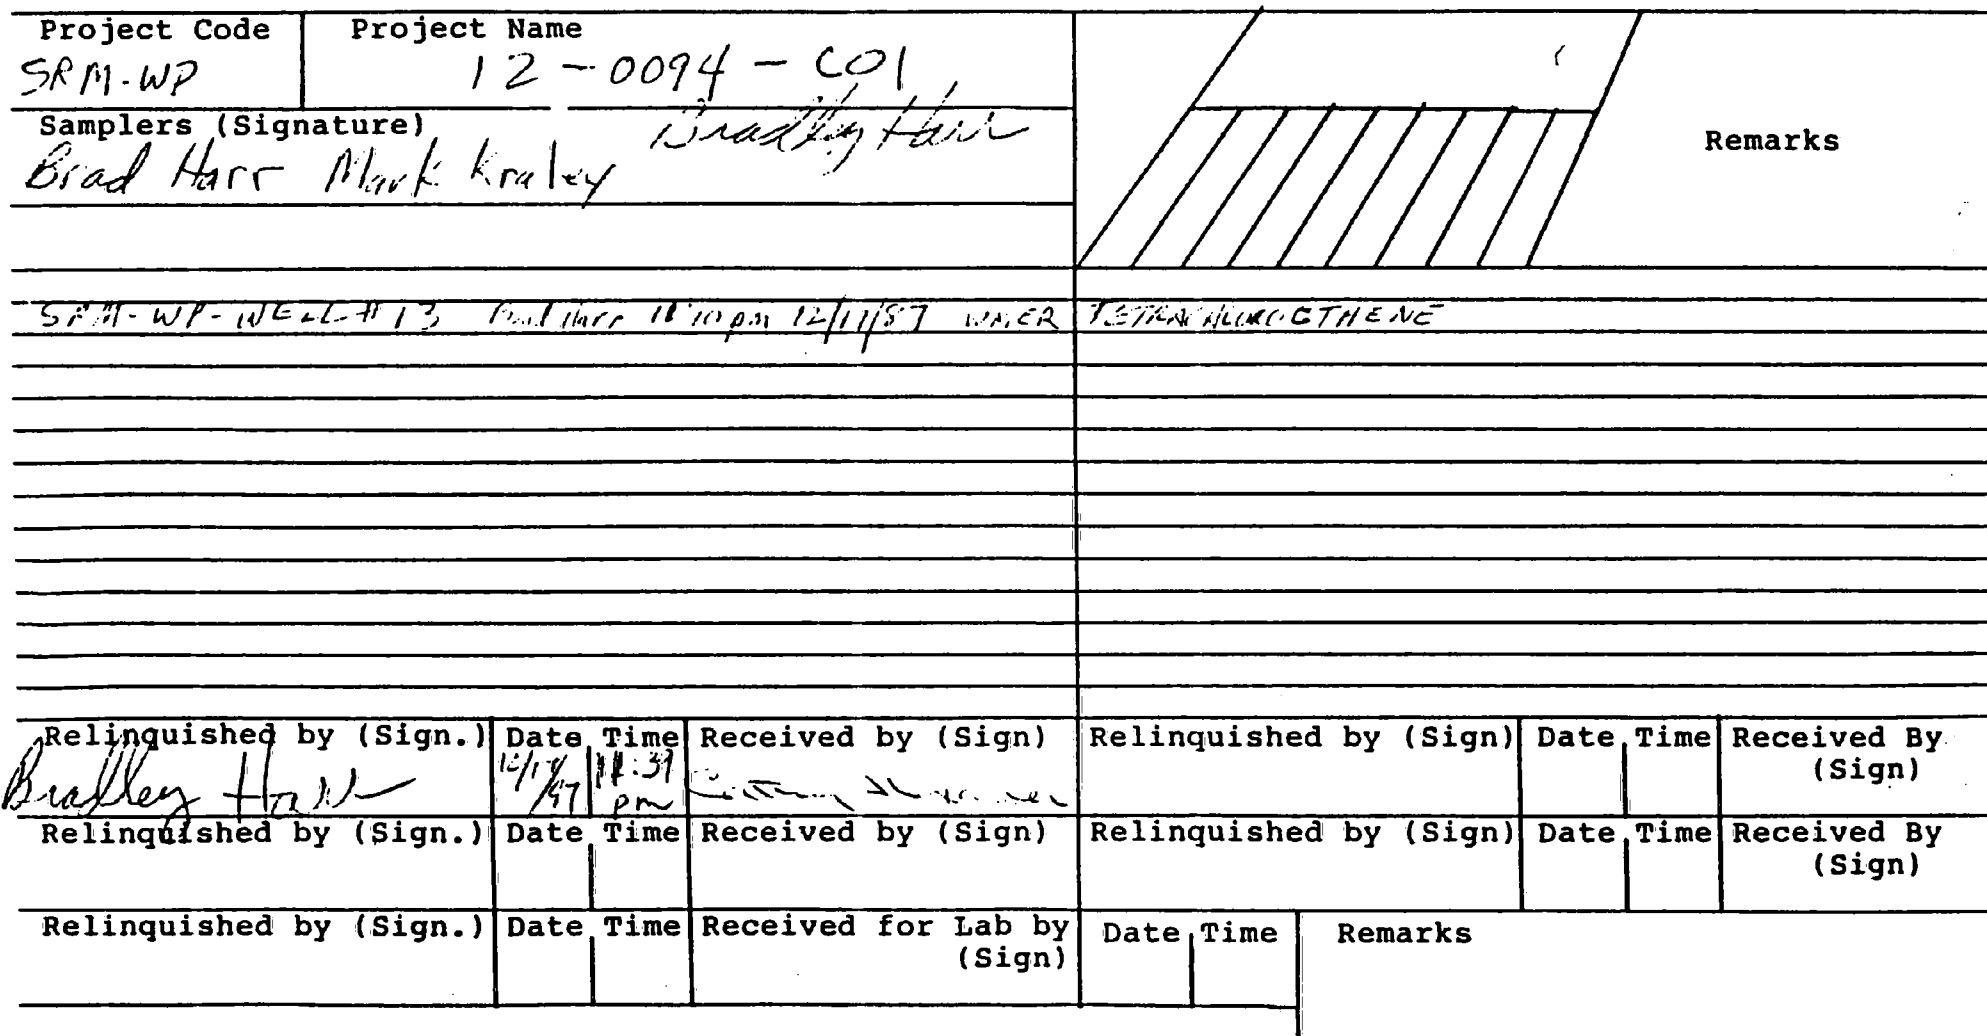 Project Code Project Name
SRM-WP 12-0094-C01
Samplers (Signature) Bradley Harr
Brad Harr Mark Kraley
Remarks
SRM-WP-WELL#13 Brad Harr pm 12/11/87 WATER TETRACHLOROETHENE
Relinquished by (Sign.) Date Time Received by (Sign) Relinquished by (Sign) Date Time Received By (Sign)
Bradley Harr pm
Relinquished by (Sign.) Date Time Received by (Sign) Relinquished by (Sign) Date Time Received By (Sign)
Relinquished by (Sign.) Date Time Received for Lab by (Sign) Date Time Remarks